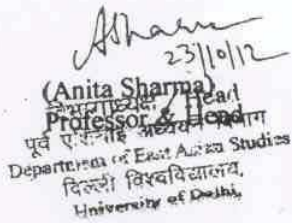 ASharma
23/10/12
(Anita Sharma)
विभागाध्यक्ष / Head
Professor & Head
पूर्व एशियाई अध्ययन विभाग
Department of East Asian Studies
दिल्ली विश्वविद्यालय,
University of Delhi,